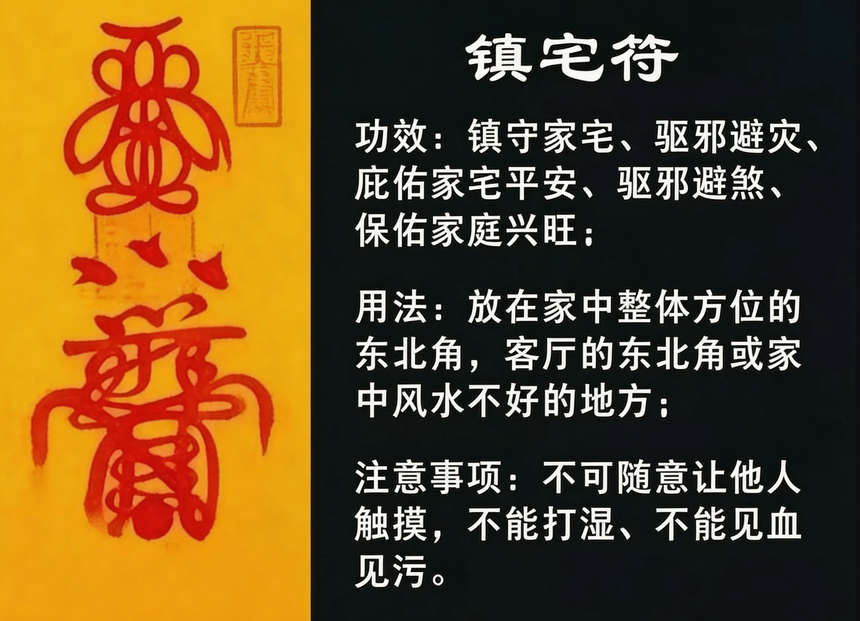 镇宅符
功效：镇守家宅、驱邪避灾、
庇佑家宅平安、驱邪避煞、
保佑家庭兴旺；
用法：放在家中整体方位的
东北角，客厅的东北角或家
中风水不好的地方；
注意事项：不可随意让他人
触摸，不能打湿、不能见血
见污。